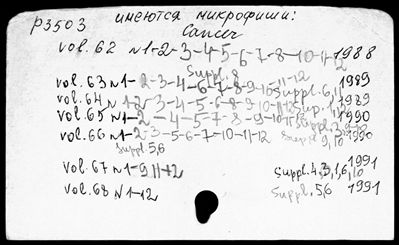 P3503 имеются микрофиши:
Cancer
vol. 62 N 1-2-3-4-5-6-7-8-10-11-12 1988
Suppl. 8
vol. 63 N 1-2-3-4-6-7-8-9-10-11-12 Suppl. 6,11 1989
vol. 64 N 1-2-3-4-5-6-8-9-10-11-12 Sup. 1,2 1989
vol. 65 N 1-2-4-5-7-8-9-10-11-12 1990
vol. 66 N 1-2-3-5-6-7-10-11-12 Suppl. 9,10 1990
Suppl. 5,6
vol. 67 N 1-9, 11-12 Suppl. 4,3,1,6,10 1991
vol. 68 N 1-12 Suppl. 5,6 1991